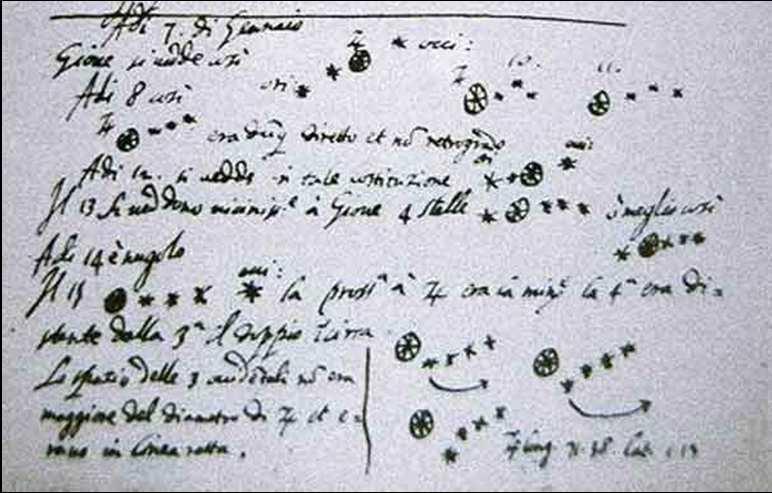 Adi 7. di Gennaio
Gione si vedde così
ori: ♃ occi:
Adi 8 così ♃ 10. 11.
♃ era dūq diretto et nō retrogrado
Adi 12. si vedde in tale costituzione ori occi:
Il 13 si veddono vicinissᵉ à Gione 4 stelle ò meglio così
Adi 14 è nugolo
Il 15 occi: la prossᵃ à ♃ era la minᵉ la 4ᵃ era di=
stante dalla 3ᵃ il doppio
Lo spatio delle 3 occidentali nō era
maggiore del diametro di ♃ et e=
rano in linea retta.
♃ long. 71.38 lat. 1.13